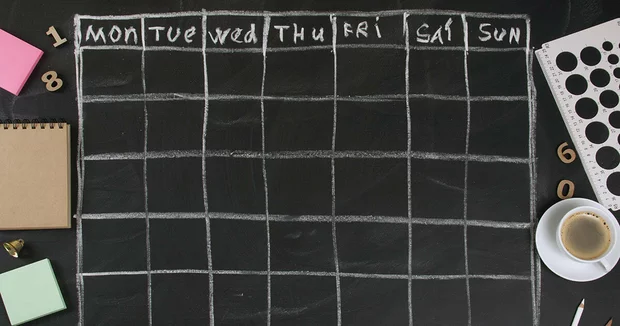 Mon TUE Wed THU FRi SAT SUN
1
8
6
0